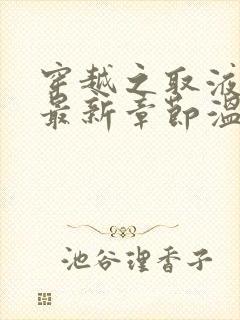 穿越之取液
最新章节温
池谷理香子